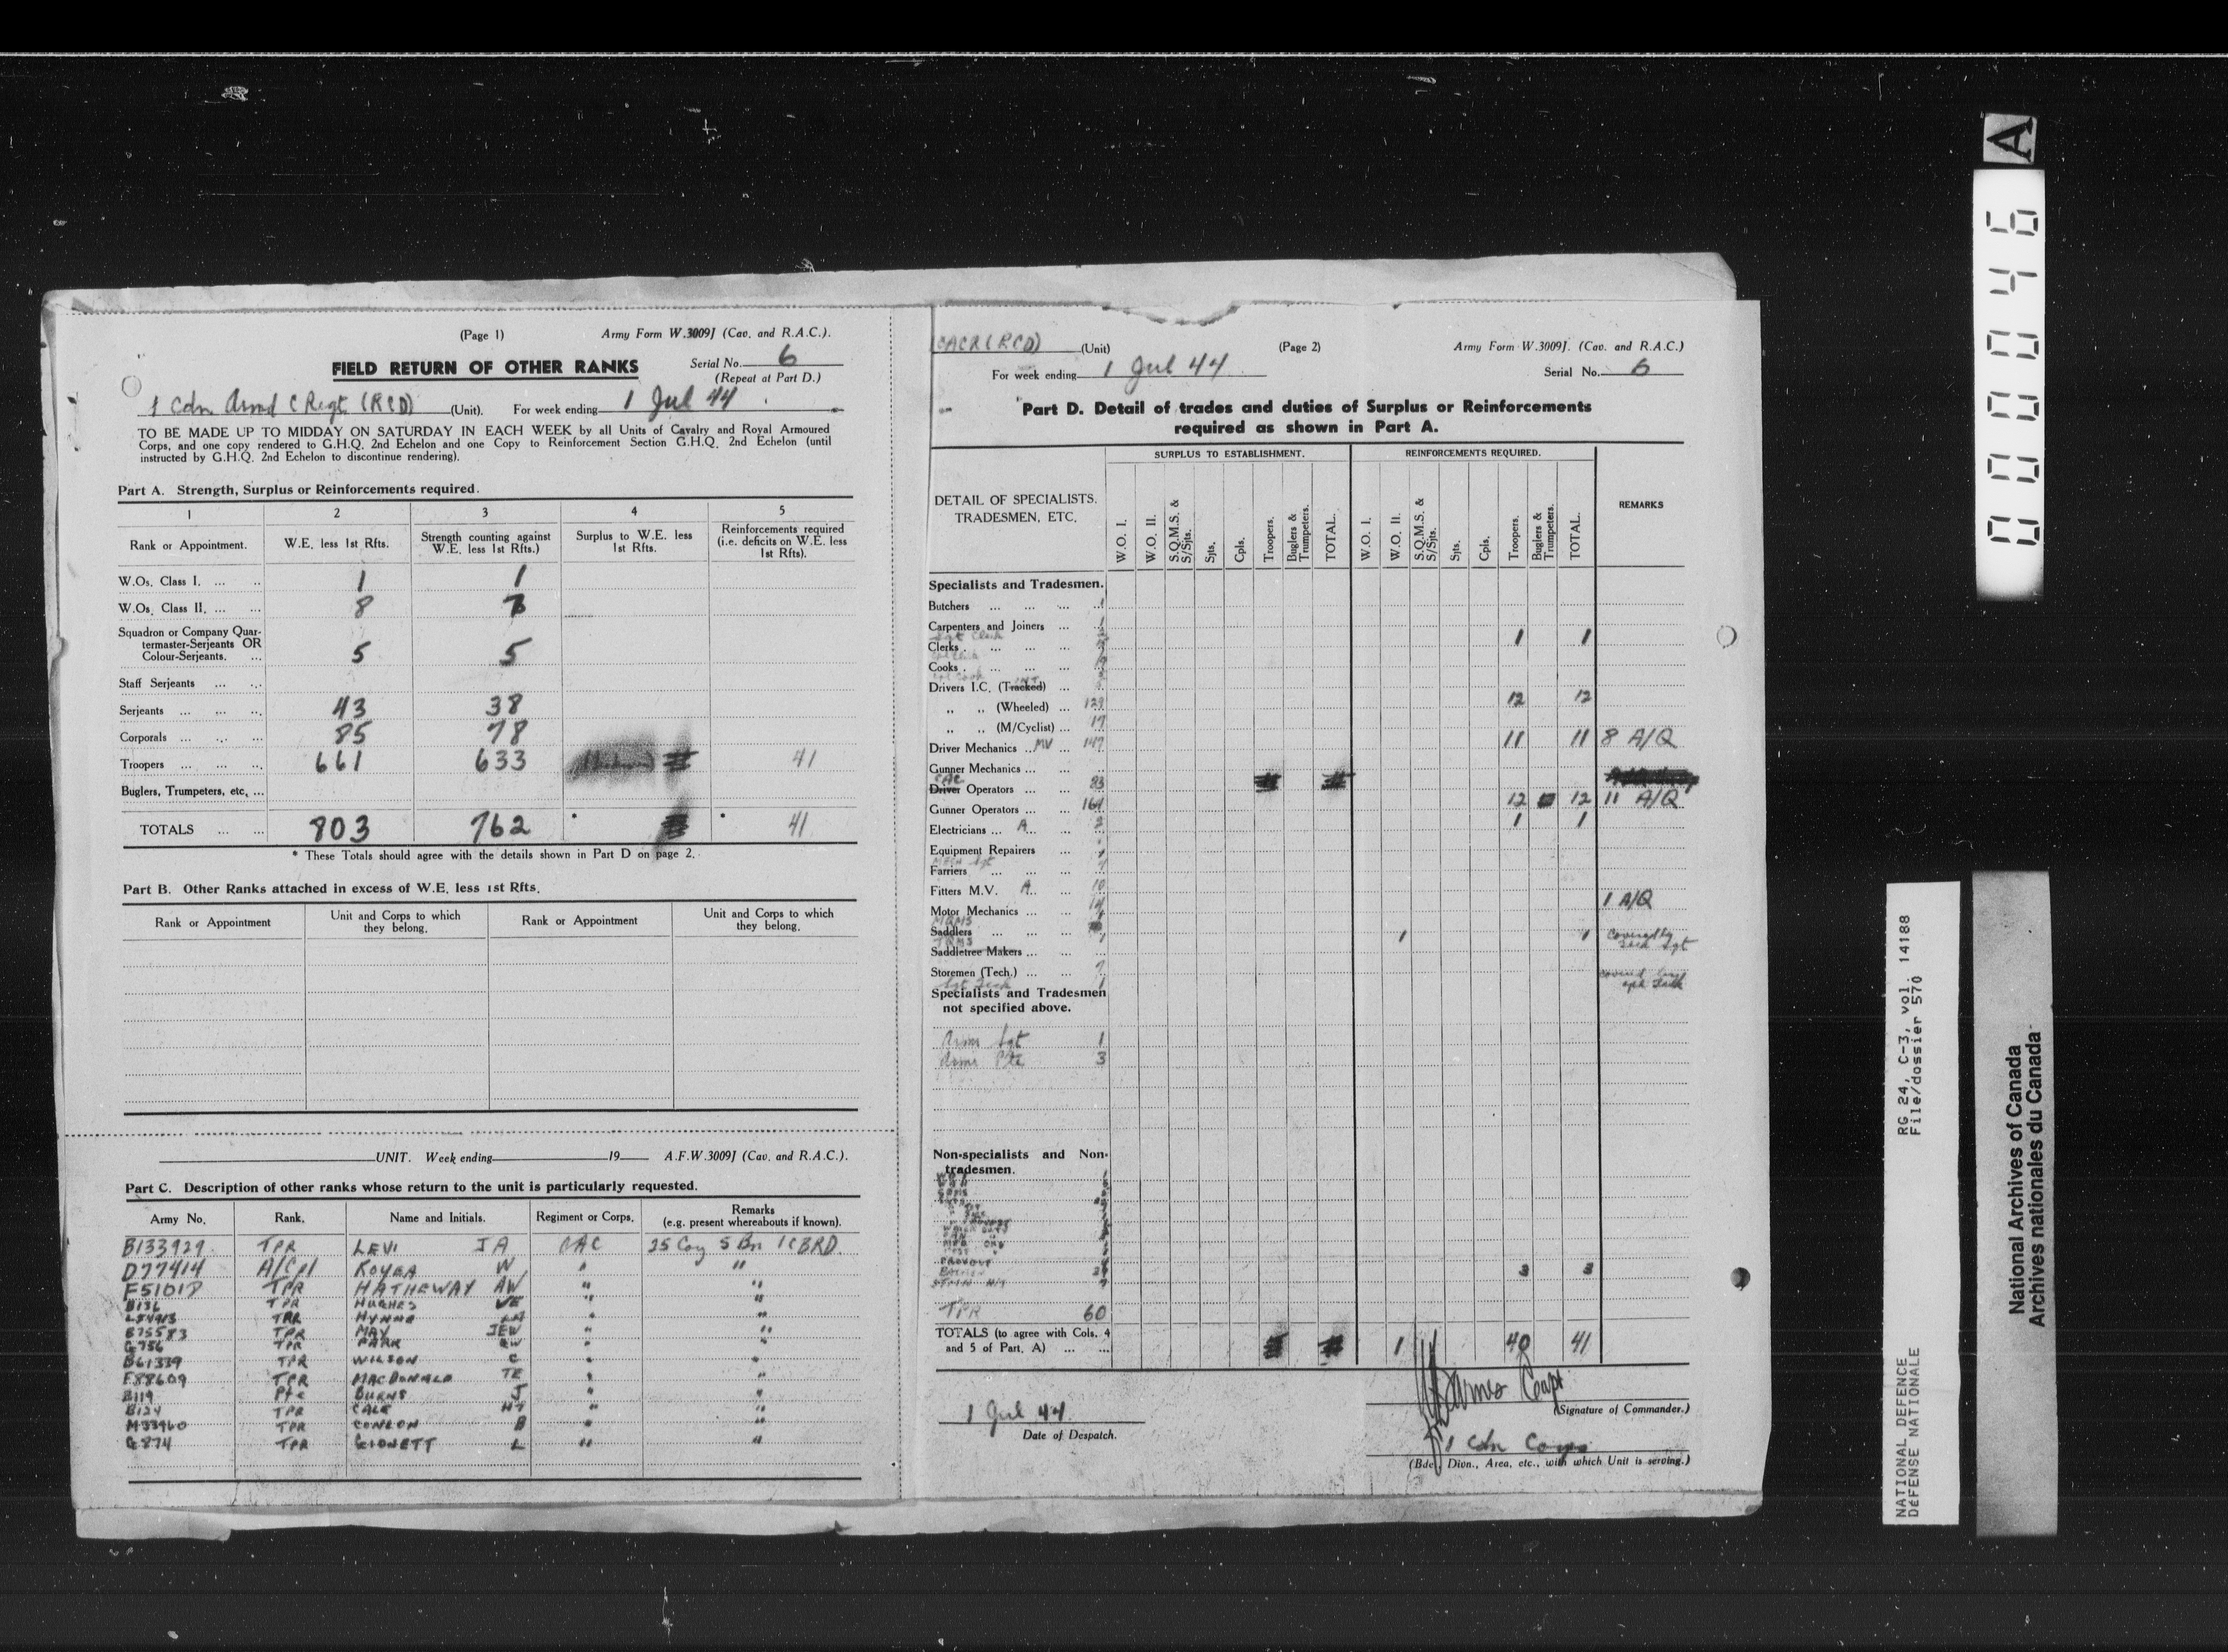 (Page 1) Army Form W.3009J (Cav. and R.A.C.).
FIELD RETURN OF OTHER RANKS Serial No. 6
(Repeat at Part D.)
1 Cdn Armd C Regt (RCD) (Unit). For week ending 1 Jul 44
TO BE MADE UP TO MIDDAY ON SATURDAY IN EACH WEEK by all Units of Cavalry and Royal Armoured
Corps, and one copy rendered to G.H.Q. 2nd Echelon and one Copy to Reinforcement Section G.H.Q. 2nd Echelon (until
instructed by G.H.Q. 2nd Echelon to discontinue rendering).
Part A. Strength, Surplus or Reinforcements required.
1 2 3 4 5
Rank or Appointment. W.E. less 1st Rfts. Strength counting against W.E. less 1st Rfts.) Surplus to W.E. less 1st Rfts. Reinforcements required (i.e. deficits on W.E. less 1st Rfts).
W.Os. Class I. ... .. 1 1
W.Os. Class II. ... ... 8 7
Squadron or Company Quar-
termaster-Serjeants OR
Colour-Serjeants. ... 5 5
Staff Serjeants ... ...
Serjeants ... ... ... 43 38
Corporals ... ... ... 85 78
Troopers ... ... ... 661 633 41
Buglers, Trumpeters, etc. ...
TOTALS ... ... 803 762 * * 41
* These Totals should agree with the details shown in Part D on page 2.
Part B. Other Ranks attached in excess of W.E. less 1st Rfts.
Rank or Appointment Unit and Corps to which they belong. Rank or Appointment Unit and Corps to which they belong.
UNIT. Week ending 19 A.F.W.3009J (Cav. and R.A.C.).
Part C. Description of other ranks whose return to the unit is particularly requested.
Army No. Rank. Name and Initials. Regiment or Corps. Remarks (e.g. present whereabouts if known).
B133929 TPR LEVI JA CAC 25 Coy 5 Bn 1CBRD.
D77414 A/Cpl W " "
TPR HATHEWAY AW " "
B136 TPR HUGHES VE " "
TPR " "
B75583 TPR MAY JEW " "
G756 TPR PARK " "
B61339 TPR WILSON C " "
F88609 TPR MACDONALD TE " "
B119 Pte BURNS J " "
B124 TPR CALE " "
M33960 TPR CONLON B " "
G874 TPR L " "
CACR (RCD) (Unit) (Page 2) Army Form W.3009J. (Cav. and R.A.C.)
For week ending 1 Jul 44 Serial No. 6
Part D. Detail of trades and duties of Surplus or Reinforcements
required as shown in Part A.
DETAIL OF SPECIALISTS. TRADESMEN, ETC. SURPLUS TO ESTABLISHMENT. REINFORCEMENTS REQUIRED. REMARKS
W.O. I. W.O. II. S.Q.M.S. & S/Sjts. Sjts. Cpls. Troopers. Buglers & Trumpeters. TOTAL. W.O. I. W.O. II. S.Q.M.S. & S/Sjts. Sjts. Cpls. Troopers. Buglers & Trumpeters. TOTAL.
Specialists and Tradesmen.
Butchers ... ... ... 1
Carpenters and Joiners ... 1
Clerks . ... ... ... 1 1
Cooks . ... ... ...
Drivers I.C. (Tracked) ...
„ „ (Wheeled) ... 129 12 12
„ „ (M/Cyclist) ... 17
Driver Mechanics ... MV ... 147 11 11 8 A/Q
Gunner Mechanics ... ..
CAC
Driver Operators ... ... 83
Gunner Operators ... ... 164 12 12 11 A/Q
Electricians ... A ... 2 1 1
Equipment Repairers ...
Farriers ... ... ...
Fitters M.V. A ... 10
Motor Mechanics ... ... 14 1 A/Q
MQMS
Saddlers ... ... ...
TQMS 1 1 1
Saddletree Makers ... ...
Storemen (Tech.) ... ... 7
Specialists and Tradesmen
not specified above.
Armr Sgt 1
Armr Pte 3
Non-specialists and Non-
tradesmen.
3 3
TPR 60
TOTALS (to agree with Cols. 4
and 5 of Part. A) ... ... 1 40 41
Capt
1 Jul 44 (Signature of Commander.)
Date of Despatch.
1 Cdn Corps
(Bde., Divn., Area, etc., with which Unit is serving.)
A
000046
RG 24, C-3, vol. 14188
File/dossier 570
NATIONAL DEFENCE
DÉFENSE NATIONALE
National Archives of Canada
Archives nationales du Canada